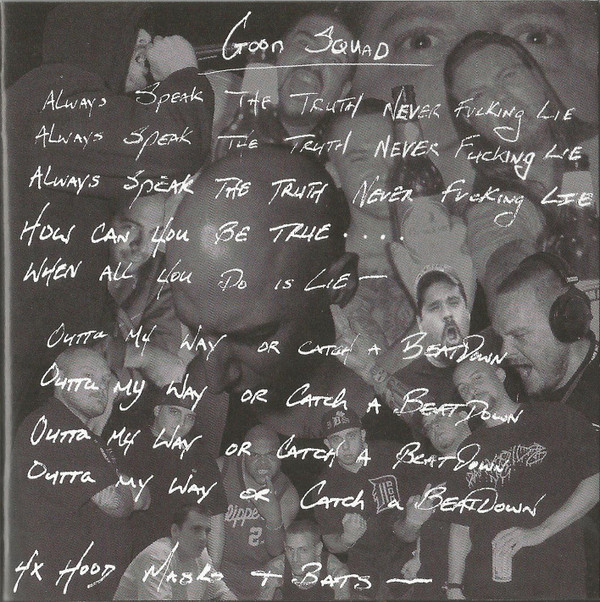 Goon Squad
Always Speak The Truth Never Fucking Lie
Always Speak The Truth Never Fucking Lie
Always Speak The Truth Never Fucking Lie
How can you Be True....
When all you Do is Lie—
Outta My Way or catch a BeatDown
Outta my Way or Catch a BeatDown
Outta my Way or Catch a BeatDown
Outta my Way or Catch a BeatDown
4x Hood Masks + Bats —